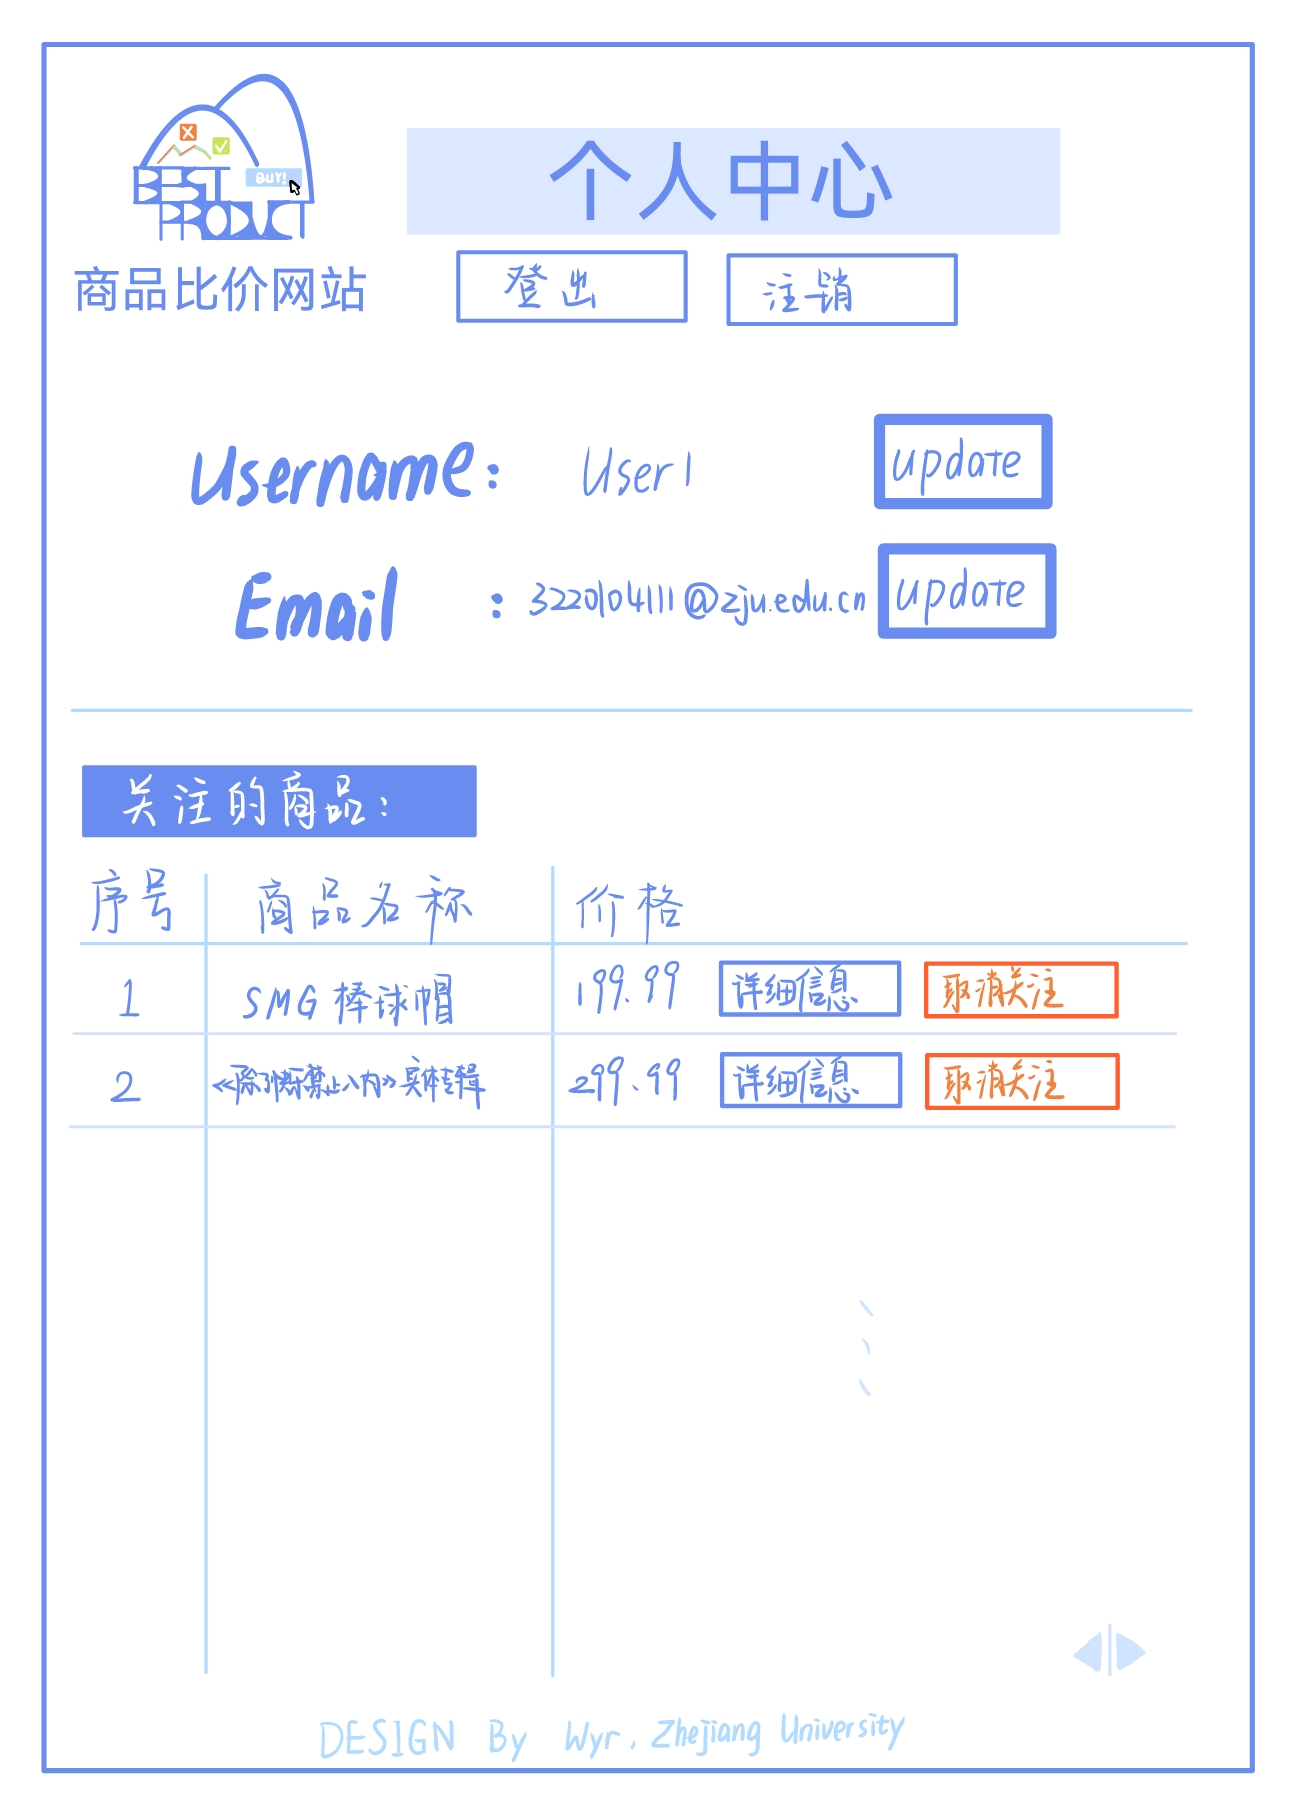 BUY!
BEST
PRODUCT
商品比价网站
个人中心
登出
注销
Username: User1 update
Email : 3220104111@zju.edu.cn update
关注的商品:
序号 商品名称 价格
1 SMG棒球帽 199.99 详细信息 取消关注
2 《除了快乐禁止入内》实体专辑 299.99 详细信息 取消关注
DESIGN By Wyr. Zhejiang University